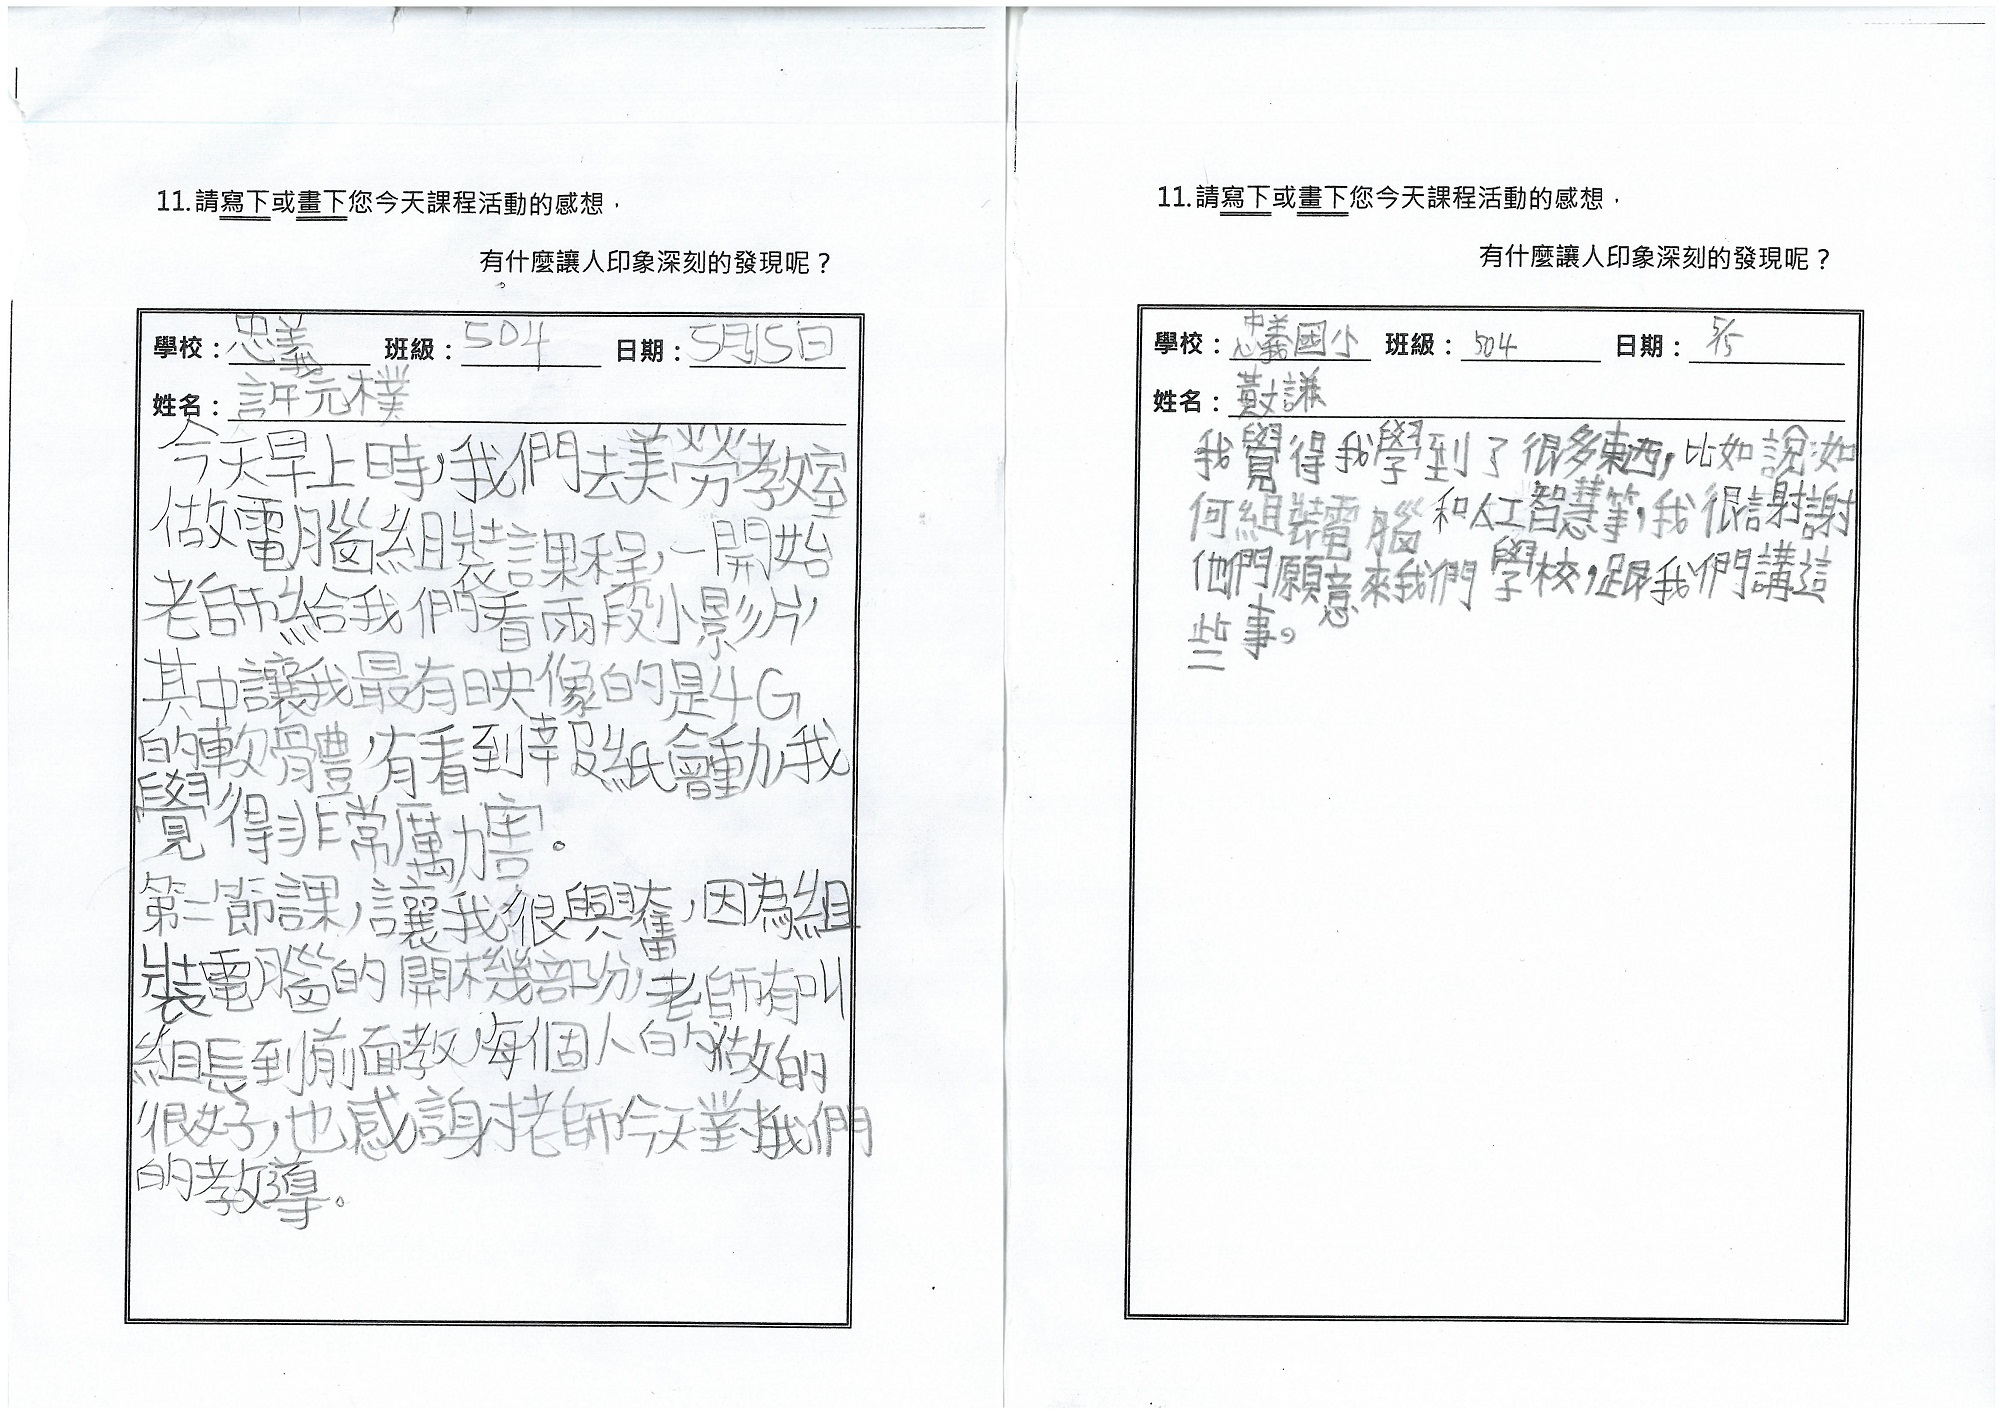 11.請寫下或畫下您今天課程活動的感想，
有什麼讓人印象深刻的發現呢？
學校：忠義 班級：504 日期：5月15日
姓名：許元樸
今天早上時，我們去美勞教室
做電腦組裝課程，一開始
老師給我們看兩段小影片，
其中讓我最有映像的是4G
的軟體，有看到報紙會動，我
覺得非常厲害。
第二節課，讓我很興奮，因為組
裝電腦的開機部份，老師有叫
組長到前面教，每個人的做的
很好，也感謝老師今天對我們
的教導。
11.請寫下或畫下您今天課程活動的感想，
有什麼讓人印象深刻的發現呢？
學校：忠義國小 班級：504 日期：5/15
姓名：黃文謙
我覺得我學到了很多東西，比如說：如
何組裝電腦和人工智慧等，我很謝謝
他們願意來我們學校，跟我們講這
些事。